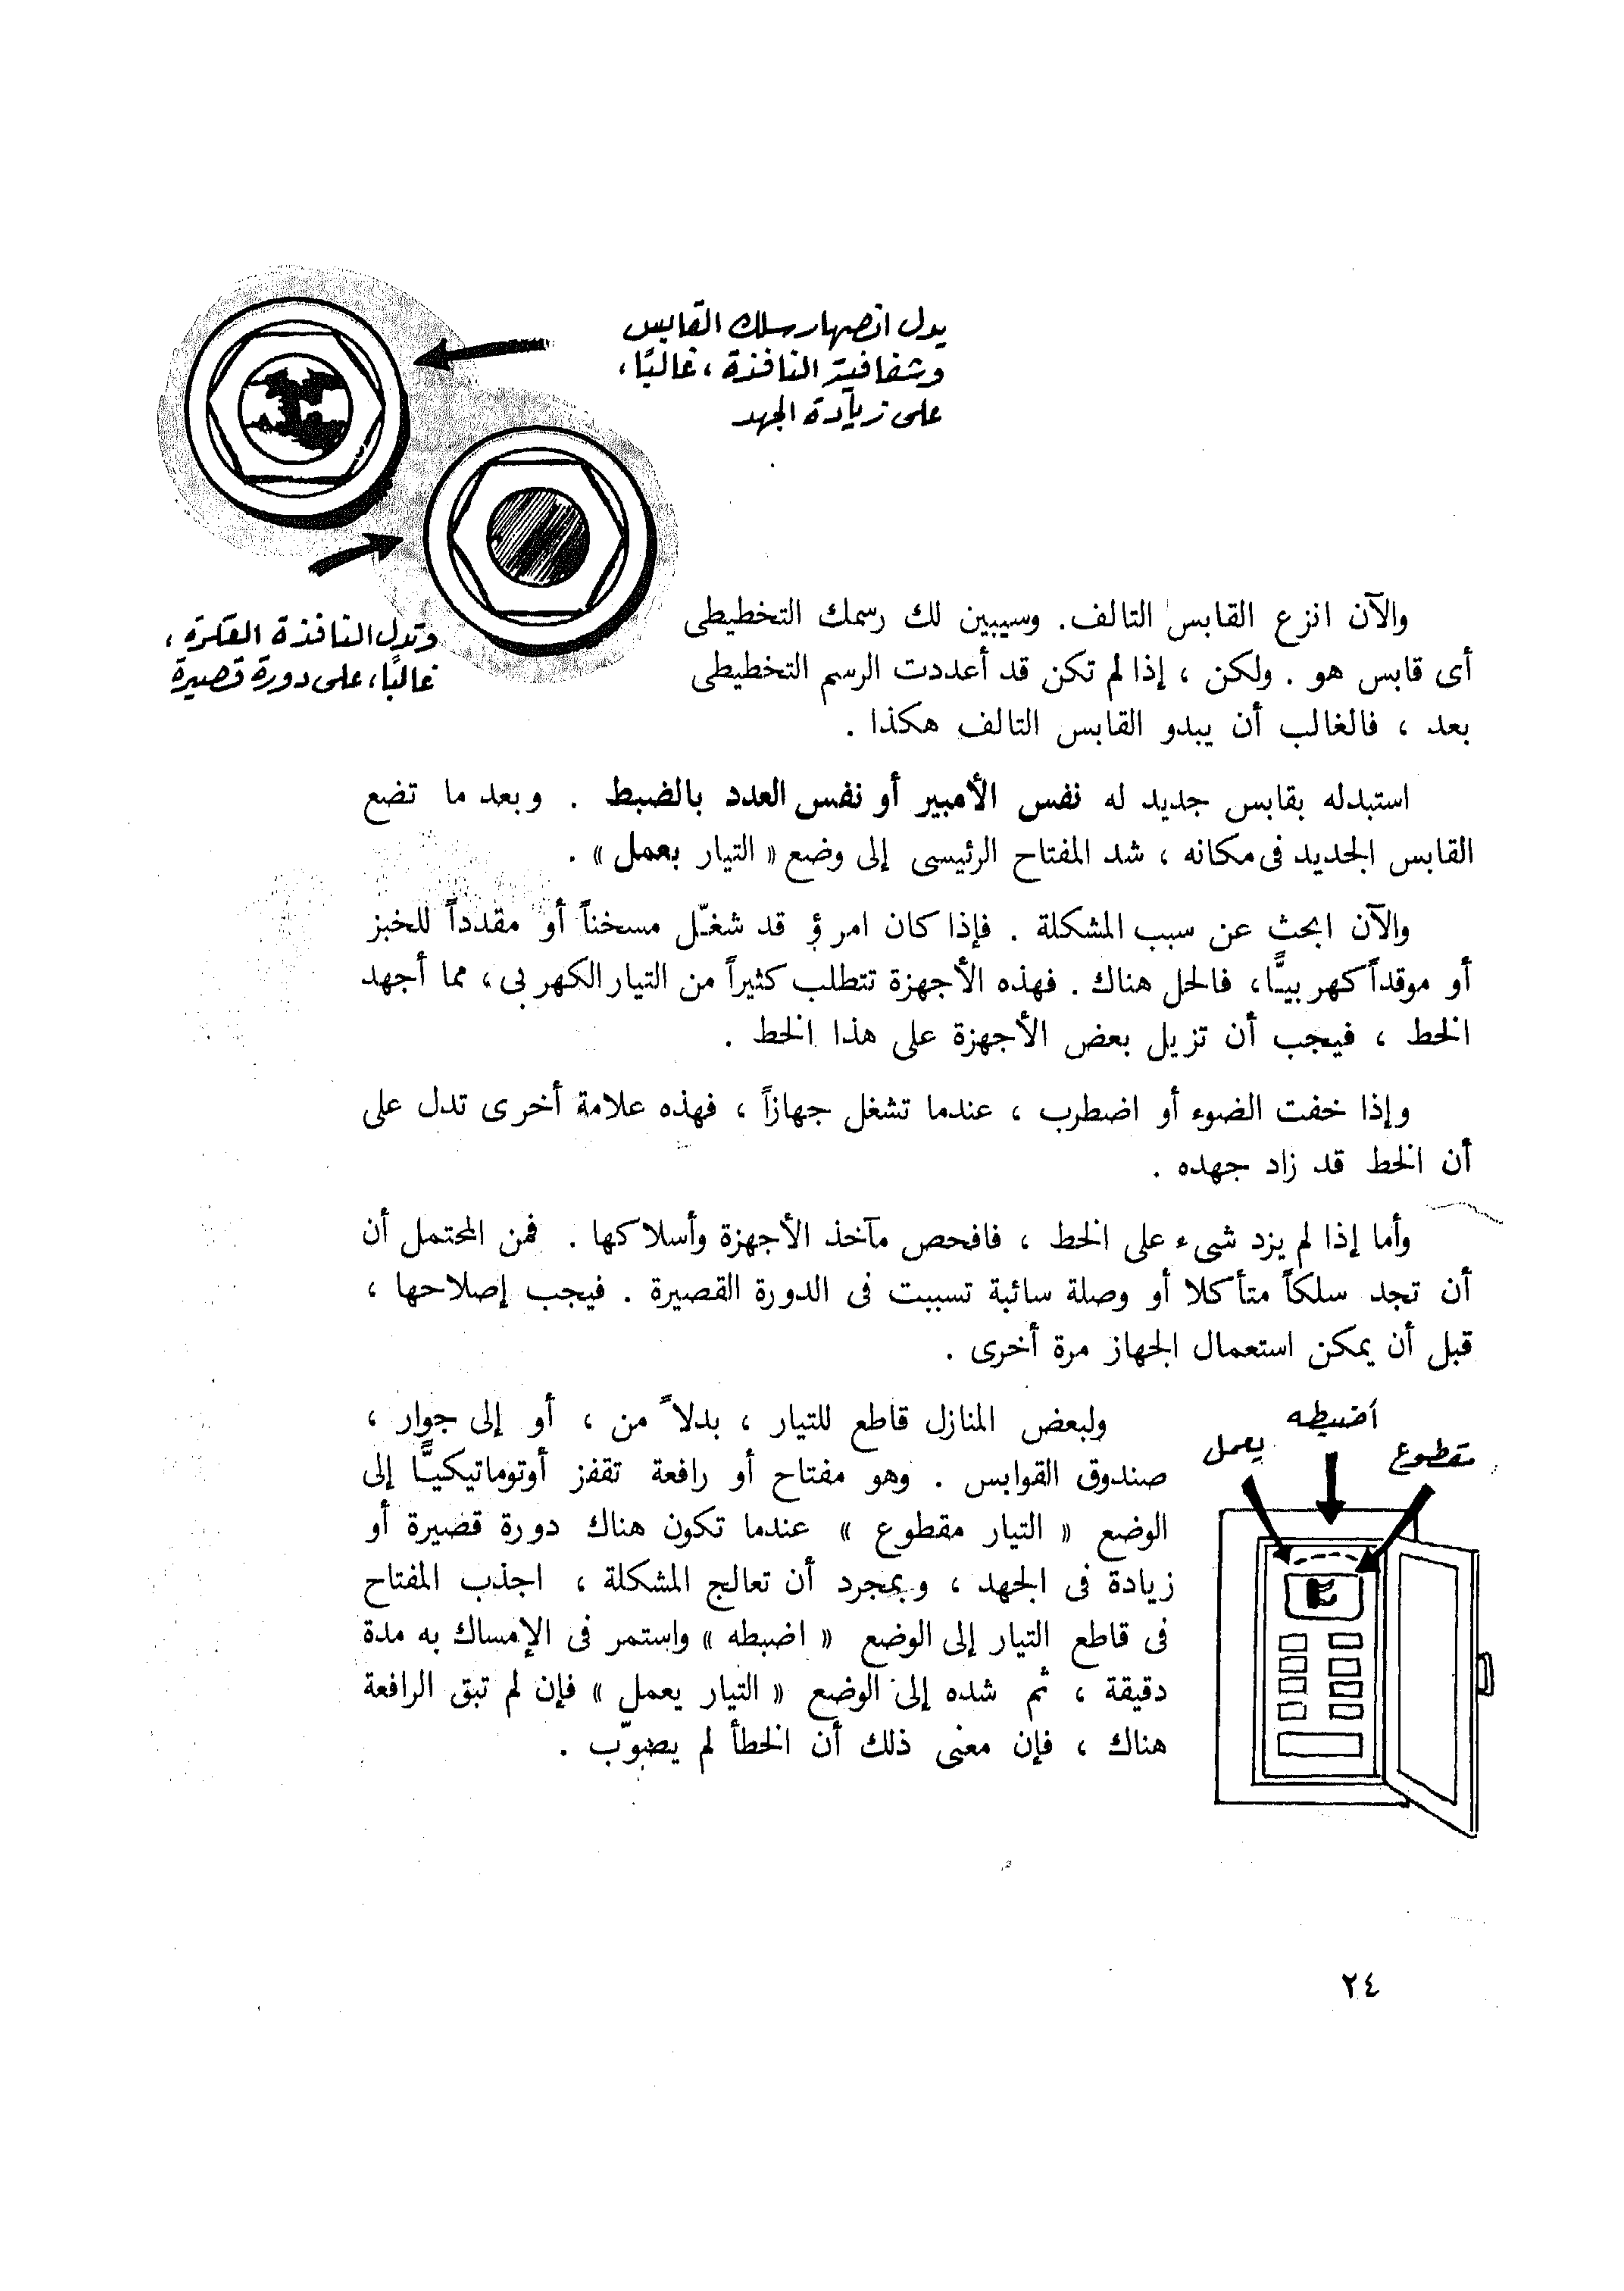 يدل انصهار سلك القابس
وشفافية النافذة ، غالبًا ،
على زيادة الجهد
وتدل النافذة العكرة ،
غالبًا ، على دورة قصيرة
والآن انزع القابس التالف. وسيبين لك رسمك التخطيطى
أى قابس هو . ولكن ، إذا لم تكن قد أعددت الرسم التخطيطى
بعد ، فالغالب أن يبدو القابس التالف هكذا .
استبدله بقابس جديد له نفس الأمبير أو نفس العدد بالضبط . وبعد ما تضع
القابس الجديد فى مكانه ، شد المفتاح الرئيسى إلى وضع « التيار بعمل » .
والآن ابحث عن سبب المشكلة . فإذا كان امرؤ قد شغّل مسخناً أو مقدداً للخبز
أو موقداً كهربيًّا، فالحل هناك . فهذه الأجهزة تتطلب كثيراً من التيار الكهربى ، مما أجهد
الخط ، فيجب أن تزيل بعض الأجهزة على هذا الخط .
وإذا خفت الضوء أو اضطرب ، عندما تشغل جهازاً ، فهذه علامة أخرى تدل على
أن الخط قد زاد جهده .
وأما إذا لم يزد شىء على الخط ، فافحص مآخذ الأجهزة وأسلاكها . فمن المحتمل أن
أن تجد سلكاً متأكلا أو وصلة سائبة تسببت فى الدورة القصيرة . فيجب إصلاحها ،
قبل أن يمكن استعمال الجهاز مرة أخرى .
اضبطه
مقطوع
يعمل
ولبعض المنازل قاطع للتيار ، بدلاً من ، أو إلى جوار ،
صندوق القوابس . وهو مفتاح أو رافعة تقفز أوتوماتيكيًّا إلى
الوضع « التيار مقطوع » عندما تكون هناك دورة قضيرة أو
زيادة فى الجهد ، وبمجرد أن تعالج المشكلة ، اجذب المفتاح
فى قاطع التيار إلى الوضع « اضبطه » واستمر فى الإمساك به مدة
دقيقة ، ثم شده إلى الوضع « التيار يعمل » فإن لم تبق الرافعة
هناك ، فإن معنى ذلك أن الخطأ لم يصوّب .
٢٤